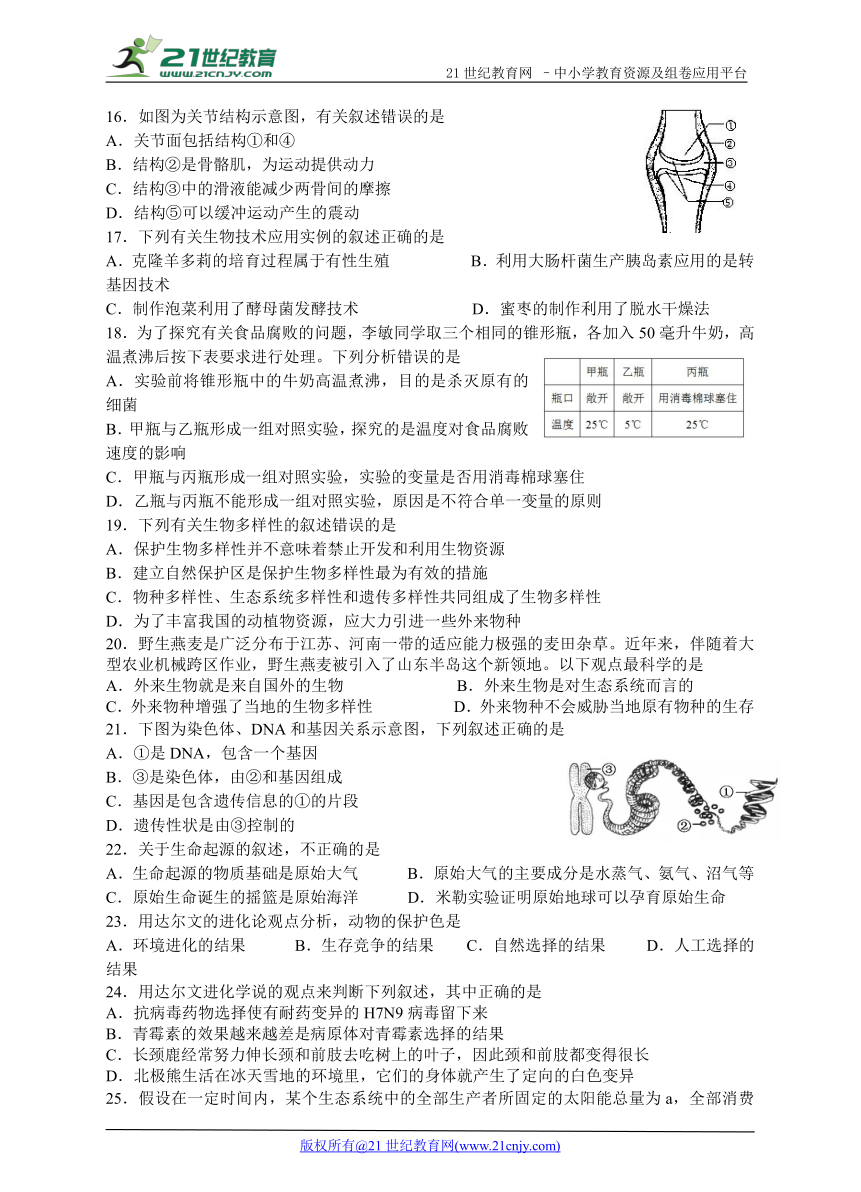 21世纪教育
WWW.21CNJY.COM
21世纪教育网 －中小学教育资源及组卷应用平台
16．如图为关节结构示意图，有关叙述错误的是
A．关节面包括结构①和④
B．结构②是骨骼肌，为运动提供动力
C．结构③中的滑液能减少两骨间的摩擦
D．结构⑤可以缓冲运动产生的震动
①
②
③
④
⑤
17．下列有关生物技术应用实例的叙述正确的是
A．克隆羊多莉的培育过程属于有性生殖 B．利用大肠杆菌生产胰岛素应用的是转
基因技术
C．制作泡菜利用了酵母菌发酵技术 D．蜜枣的制作利用了脱水干燥法
18．为了探究有关食品腐败的问题，李敏同学取三个相同的锥形瓶，各加入 50 毫升牛奶，高
温煮沸后按下表要求进行处理。下列分析错误的是
A．实验前将锥形瓶中的牛奶高温煮沸，目的是杀灭原有的
细菌
B．甲瓶与乙瓶形成一组对照实验，探究的是温度对食品腐败
速度的影响
甲瓶 乙瓶 丙瓶
瓶口 敞开 敞开 用消毒棉球塞住
温度 25℃ 5℃ 25℃
C．甲瓶与丙瓶形成一组对照实验，实验的变量是否用消毒棉球塞住
D．乙瓶与丙瓶不能形成一组对照实验，原因是不符合单一变量的原则
19．下列有关生物多样性的叙述错误的是
A．保护生物多样性并不意味着禁止开发和利用生物资源
B．建立自然保护区是保护生物多样性最为有效的措施
C．物种多样性、生态系统多样性和遗传多样性共同组成了生物多样性
D．为了丰富我国的动植物资源，应大力引进一些外来物种
20．野生燕麦是广泛分布于江苏、河南一带的适应能力极强的麦田杂草。近年来，伴随着大
型农业机械跨区作业，野生燕麦被引入了山东半岛这个新领地。以下观点最科学的是
A．外来生物就是来自国外的生物 B．外来生物是对生态系统而言的
C．外来物种增强了当地的生物多样性 D．外来物种不会威胁当地原有物种的生存
21．下图为染色体、DNA 和基因关系示意图，下列叙述正确的是
A．①是 DNA，包含一个基因
B．③是染色体，由②和基因组成
C．基因是包含遗传信息的①的片段
D．遗传性状是由③控制的
③
①
②
22．关于生命起源的叙述，不正确的是
A．生命起源的物质基础是原始大气 B．原始大气的主要成分是水蒸气、氨气、沼气等
C．原始生命诞生的摇篮是原始海洋 D．米勒实验证明原始地球可以孕育原始生命
23．用达尔文的进化论观点分析，动物的保护色是
A．环境进化的结果 B．生存竞争的结果 C．自然选择的结果 D．人工选择的
结果
24．用达尔文进化学说的观点来判断下列叙述，其中正确的是
A．抗病毒药物选择使有耐药变异的 H7N9 病毒留下来
B．青霉素的效果越来越差是病原体对青霉素选择的结果
C．长颈鹿经常努力伸长颈和前肢去吃树上的叶子，因此颈和前肢都变得很长
D．北极熊生活在冰天雪地的环境里，它们的身体就产生了定向的白色变异
25．假设在一定时间内，某个生态系统中的全部生产者所固定的太阳能总量为 a，全部消费
版权所有@21世纪教育网(www.21cnjy.com)